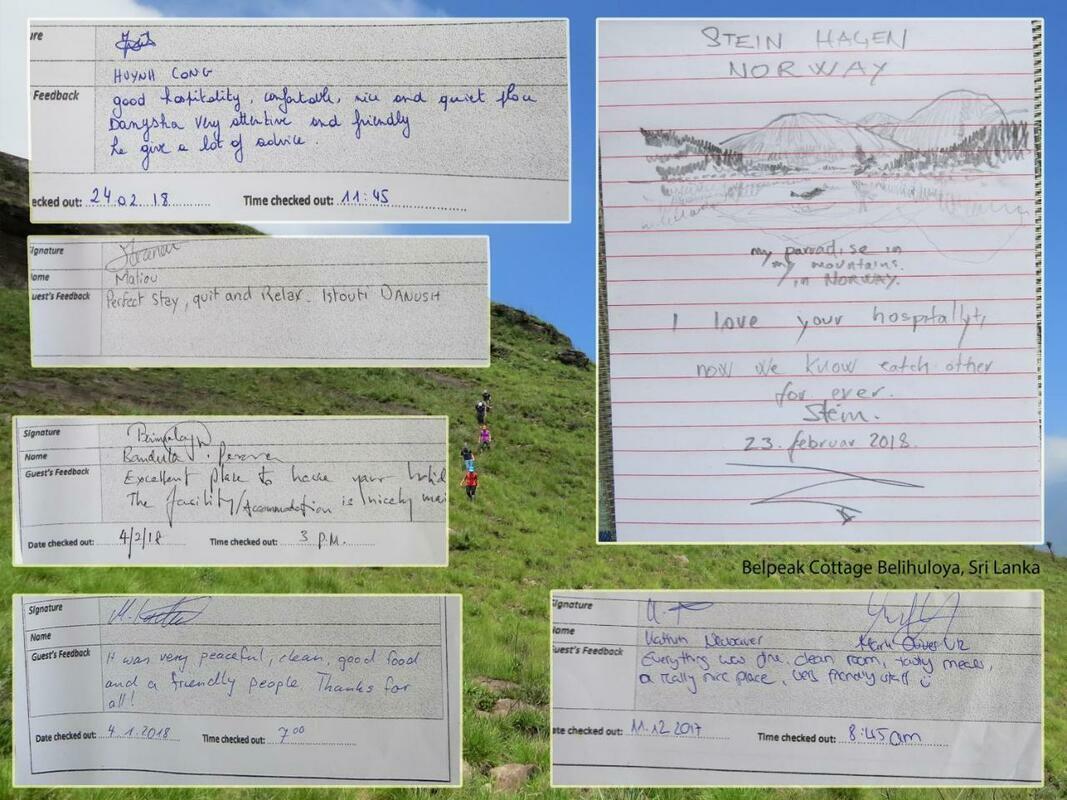 ure
HUYNH CONG
Feedback
good hospitality, confortable, nice and quiet place
Dangsha very attentive and friendly
he give a lot of advice.
ecked out: 24.02.18 Time checked out: 11:45
STEIN HAGEN
NORWAY
my paradise in
my mountains.
in NORWAY.
I love your hospitallyt,
now we know eatch other
for ever.
Stein.
23. februar 2018.
ignature
lame
uest's Feedback
Perfect stay, quit and Relax. Istouti DANUSH
Signature
Name Bandula . Perera
Guest's Feedback
Excellent place to have your holid
The facility/Accommodation is nicely mai
Date checked out: 4/2/18 Time checked out: 3 P.M.
Belpeak Cottage Belihuloya, Sri Lanka
Signature
Name
Guest's Feedback
It was very peaceful, clean, good food
and a friendly people. Thanks for
all!
Date checked out: 4.1.2018 Time checked out: 7 00
Signature
lame
uest's Feedback
Everything was fine. clean room, tasty meals,
a really nice place, very friendly staff
ate checked out: 11.12.2017 Time checked out: 8:45am